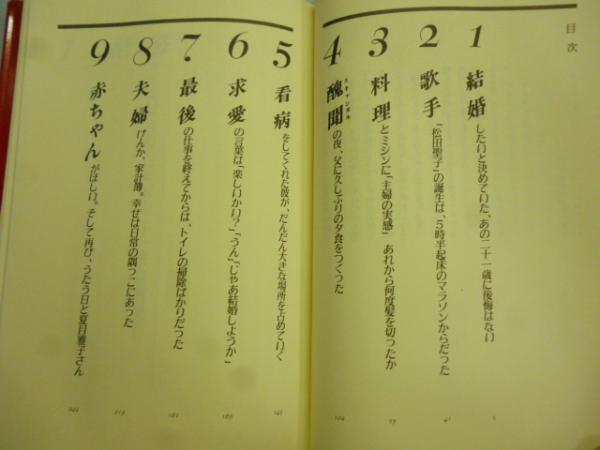 目次
1 結婚 したいと決めていた、あの二十一歳に後悔はない 5
2 歌手 「松田聖子」の誕生は、5時半起床のマラソンからだった 41
3 料理 とミシンに「主婦の実感」 あれから何度髪を切ったか 73
4 醜聞 スキャンダル の夜、父に久しぶりの夕食をつくった 104
5 看病 をしてくれた彼が、だんだん大きな場所を占めていく 145
6 求愛 の言葉は「楽しいかい?」「うん」「じゃあ結婚しようか」
7 最後 の仕事を終えてからは、トイレの掃除ばかりだった
8 夫婦 げんか、家計簿。幸せは日常の隅っこにあった
9 赤ちゃん がほしい。そして再び、うたう日と夏目雅子さん